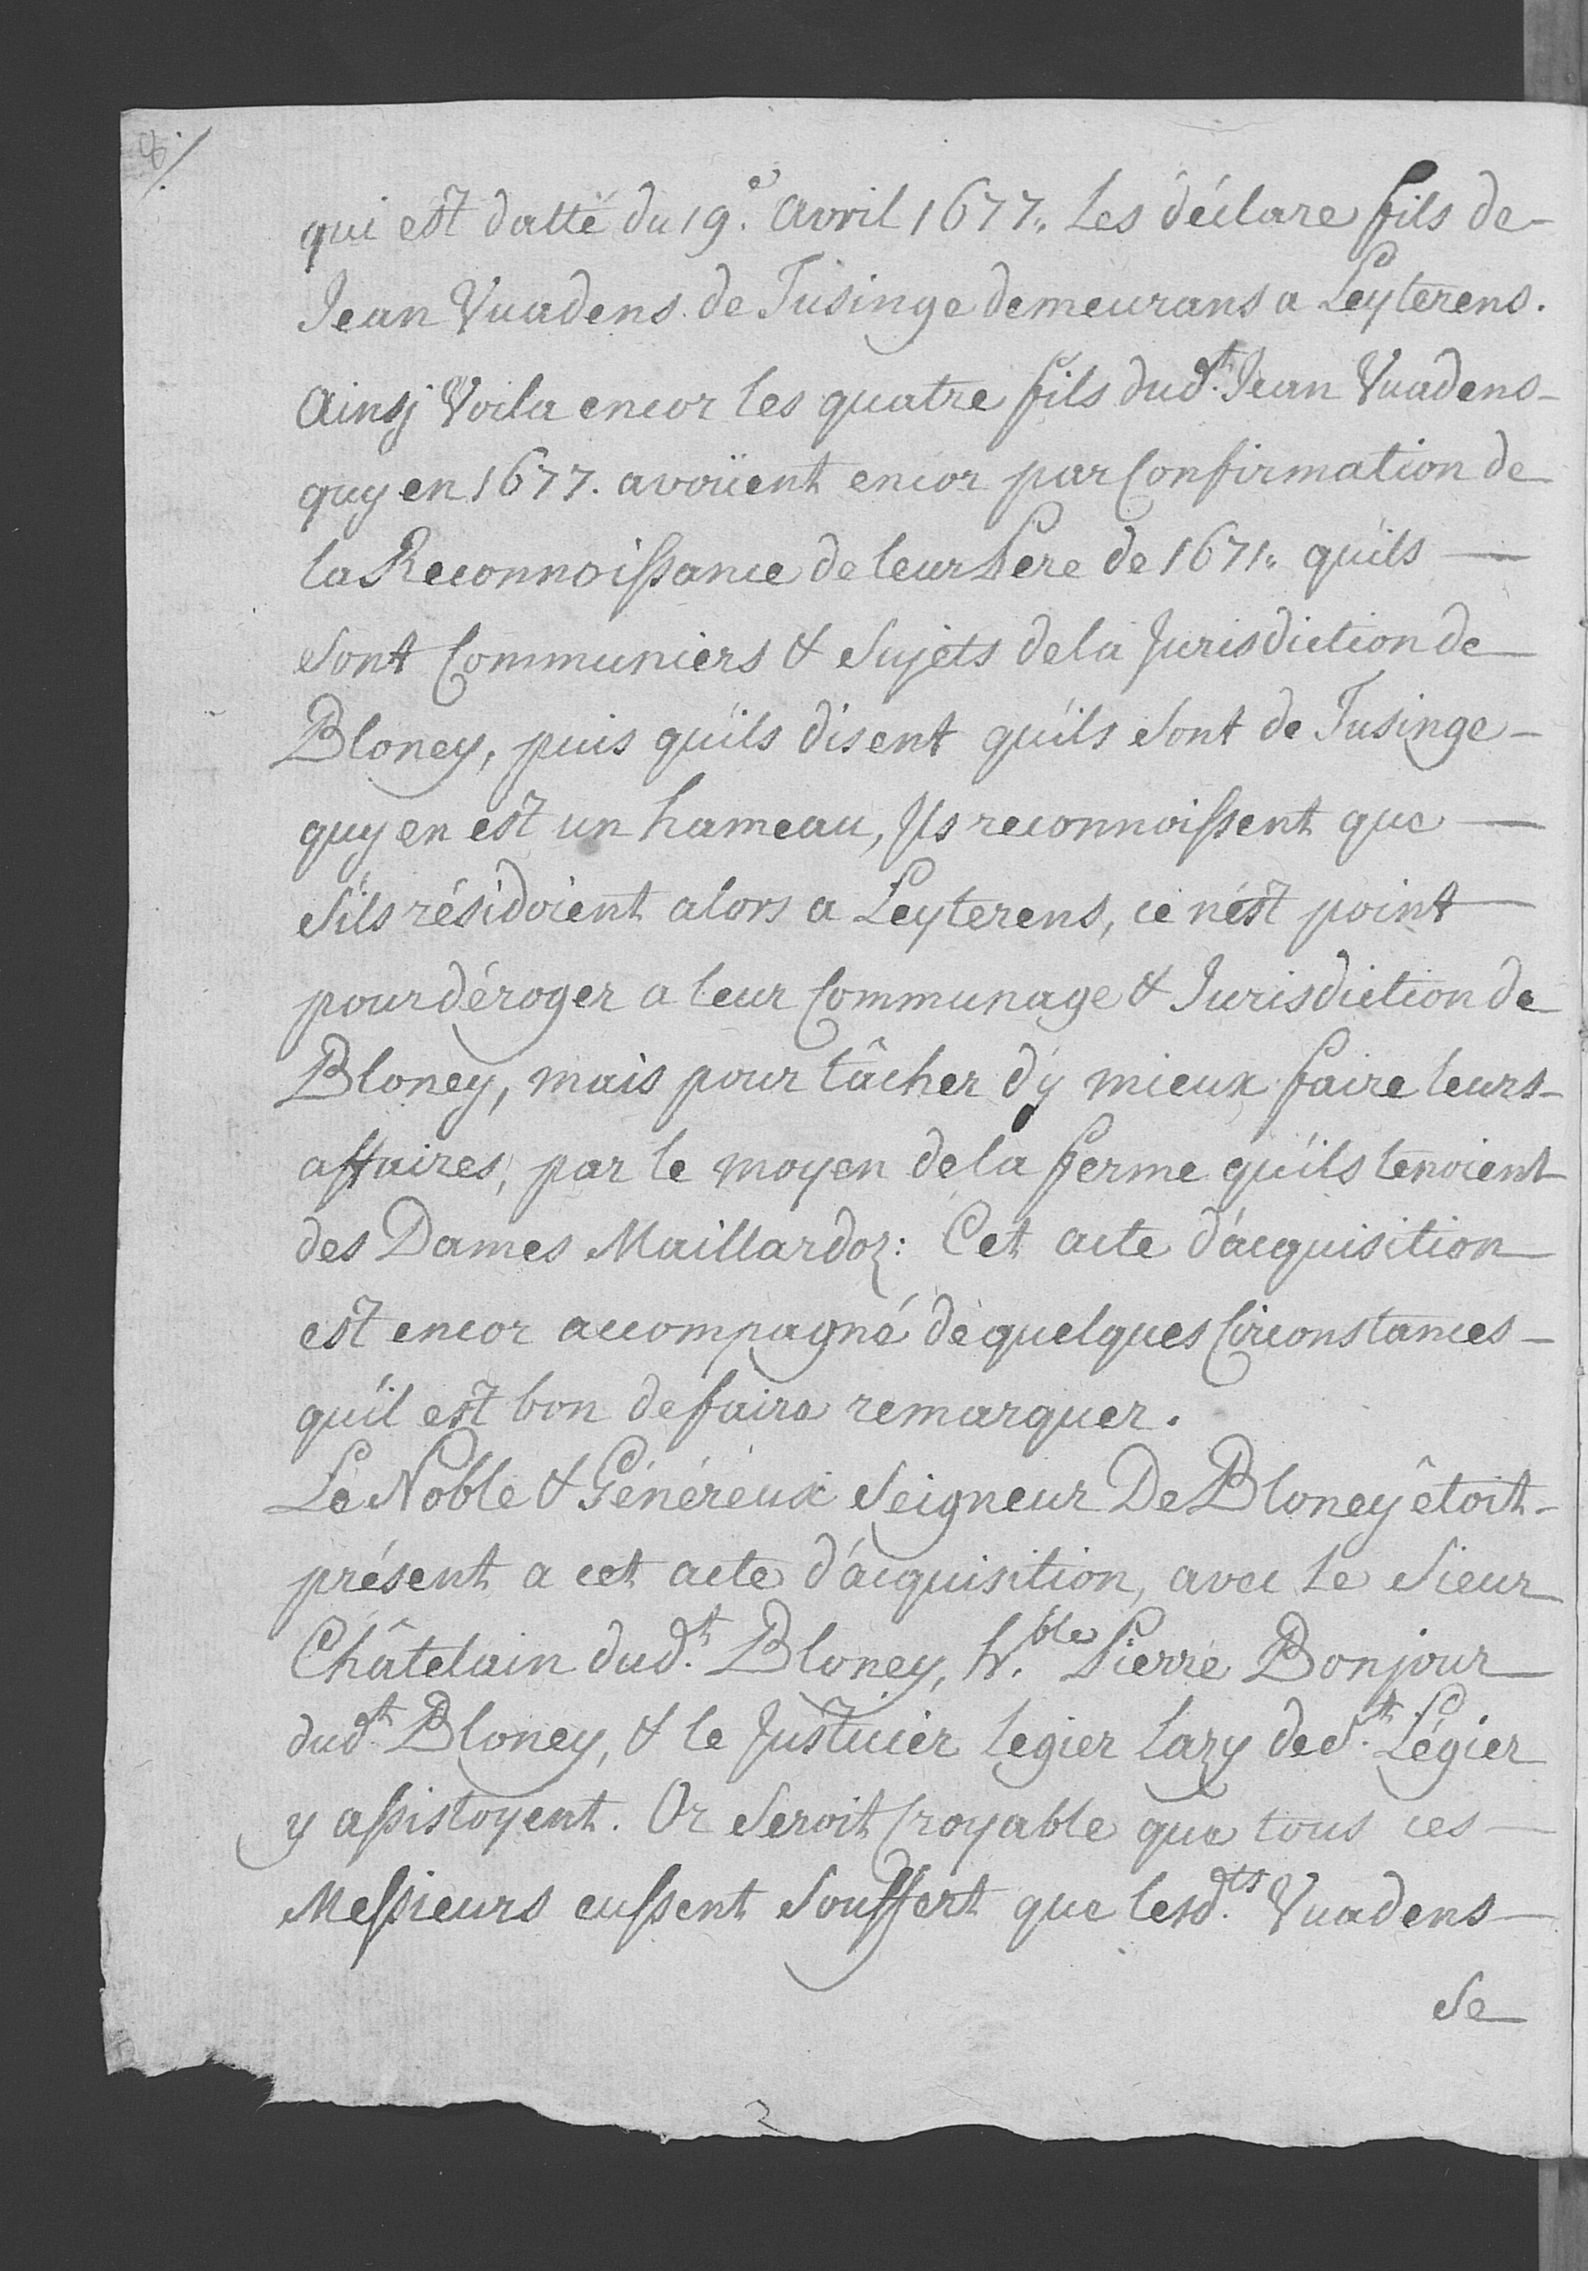 8./
qui est datté du 19.e Avril 1677. Les déclare fils de
Jean Vuadens de Tusinge demeurans a Leyterens.
Ainsj Voila encor les quatre fils dud.t Jean Vuadens
quy en 1677. avoüent encor par Confirmation de
la Reconnoissance de leur Pere de 1671. qu'ils
sont Communiers & Sujets de la Jurisdiction de
Bloney, puis qu'ils disent qu'ils sont de Tusinge
quy en est un hameau, Ils reconnoissent que
S'ils résidoient alors a Leyterens, ce n'est point
pour déroger a leur Communage & Jurisdiction de
Bloney, mais pour tâcher d'y mieux faire leurs
affaires, par le moyen de la ferme qu'ils tenoient
des Dames Maillardoz: Cet acte d'acquisition
est encor accompagné de quelques Circonstances
qu'il est bon de faire remarquer.
Le Noble & Généreux Seigneur De Bloney êtoit
présent a cet acte d'acquisition, avec le Sieur
Châtelain dud.t Bloney, h.ble Pierre Bonjour
dud.t Bloney, & le Justicier Legier Lazy de S.t Légier
y assistoyent. Or Seroit Croyable que tous ces
Messieurs eussent Souffert que lesd.ts Vuadens
Se